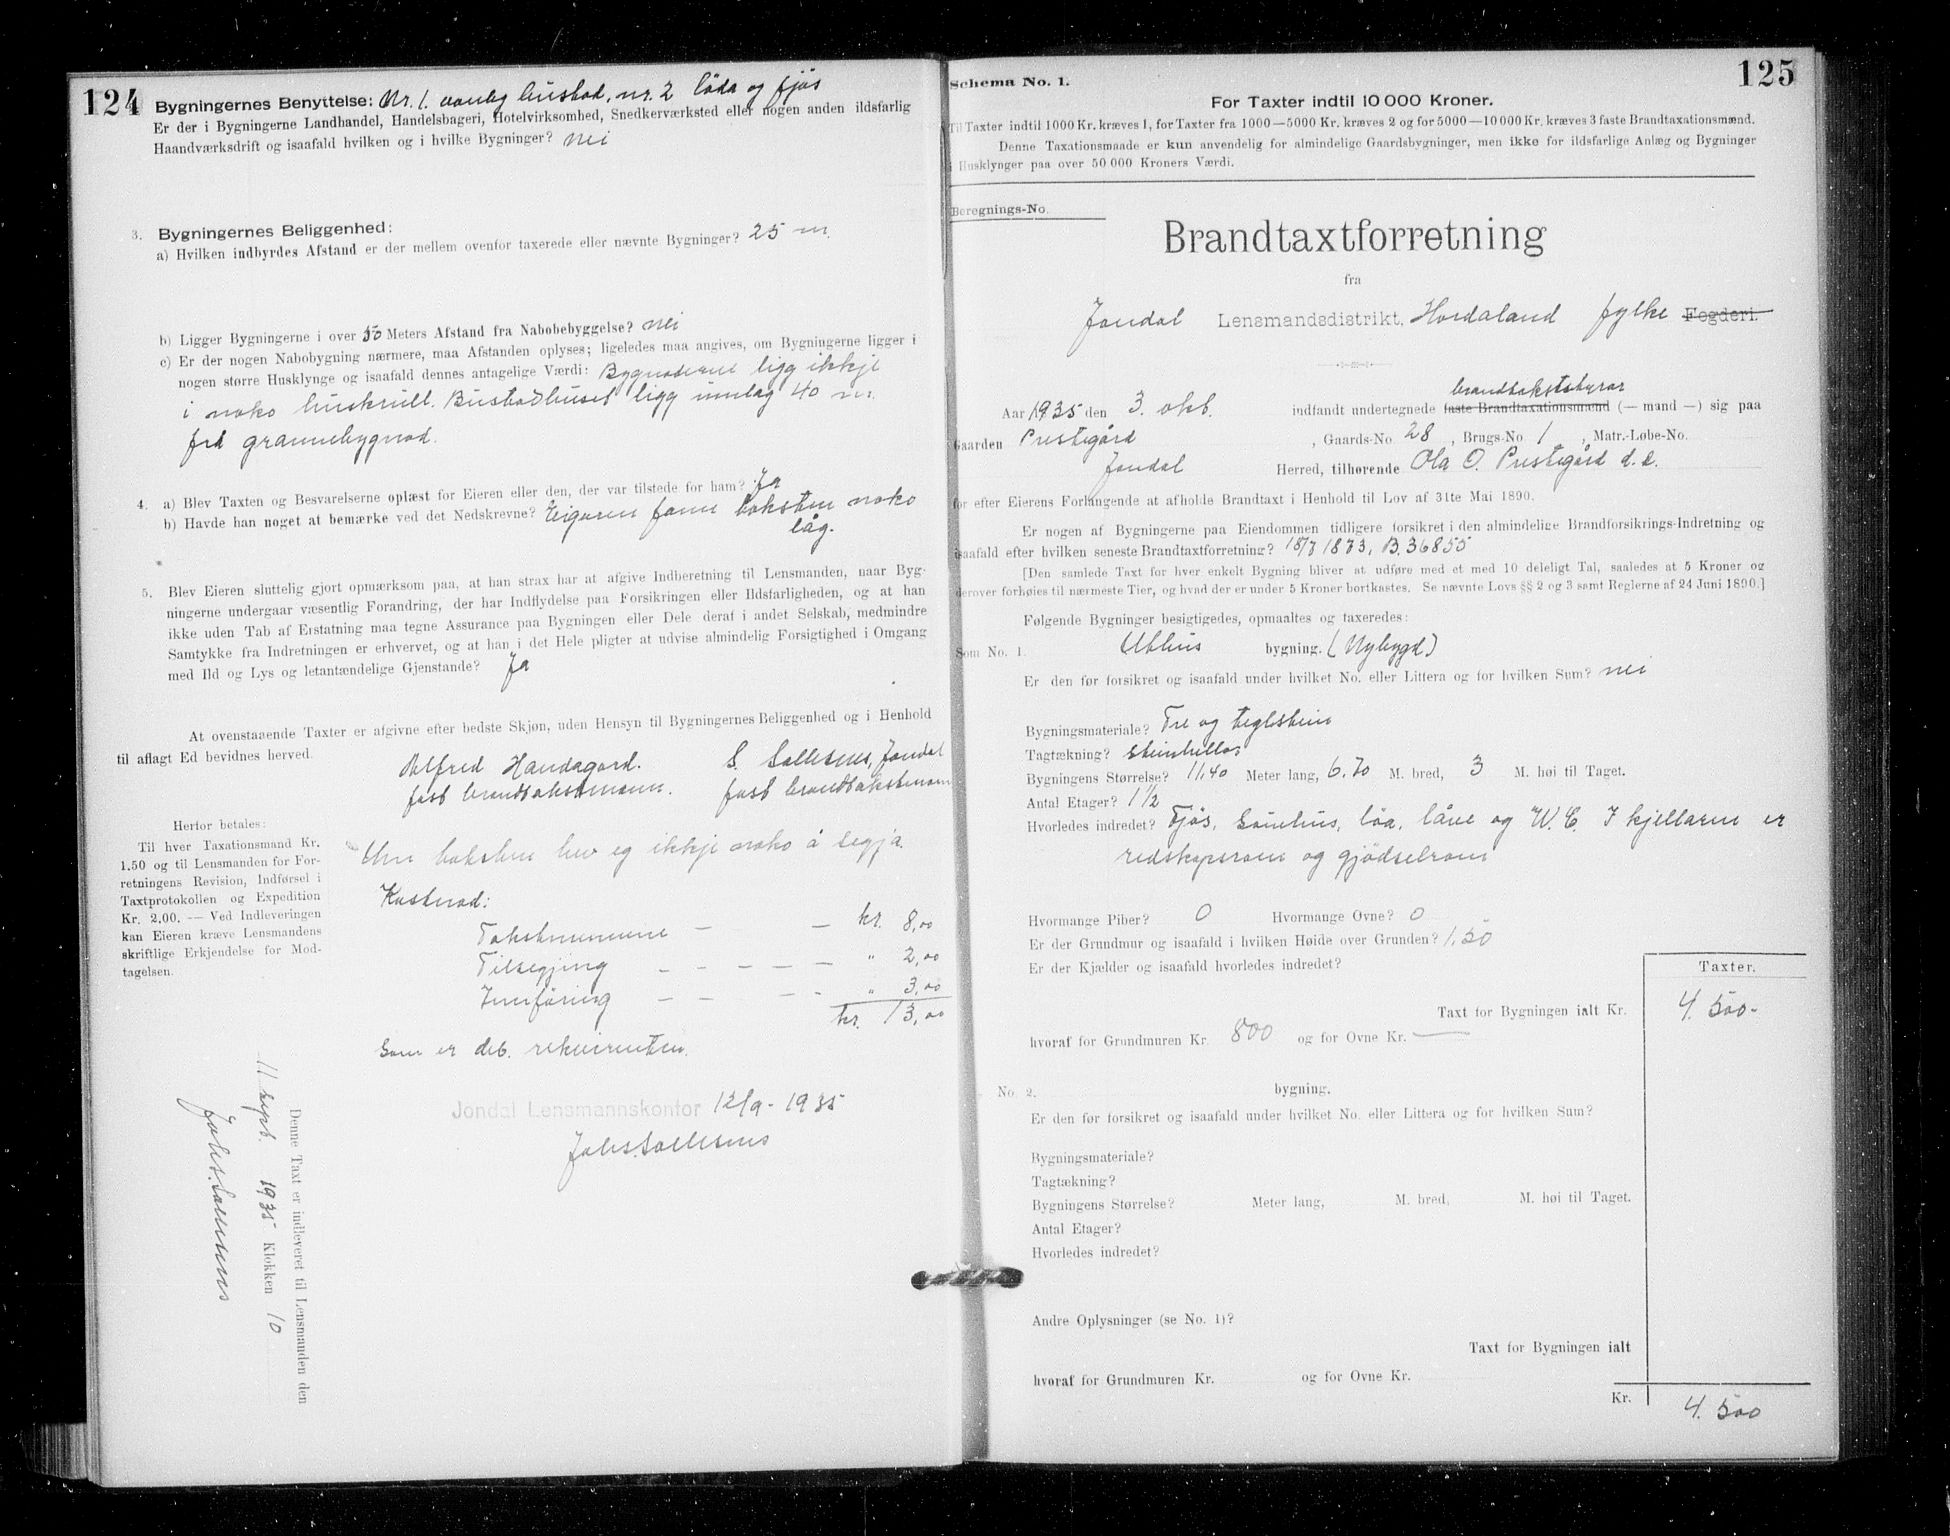 124
Bygningernes Benyttelse: Nr. 1. vanleg bustad, nr. 2 löda og fjös
Er der i Bygningerne Landhandel, Handelsbageri, Hotelvirksomhed, Snedkerværksted eller nogen anden ildsfarlig
Haandværksdrift og isaafald hvilken og i hvilke Bygninger? nei
3. Bygningernes Beliggenhed:
a) Hvilken indbyrdes Afstand er der mellem ovenfor taxerede eller nævnte Bygninger? 25 m.
b) Ligger Bygningerne i over 50 Meters Afstand fra Nabobebyggelse? nei
c) Er der nogen Nabobygning nærmere, maa Afstanden oplyses; ligeledes maa angives, om Bygningerne ligger i
nogen større Husklynge og isaafald dennes antagelige Værdi: Bygnaderne ligg ikkje
i noko huskrull. Bustadhuset ligg innlag 40 m.
frå grannebygnad.
4. a) Blev Taxten og Besvarelserne oplæst for Eieren eller den, der var tilstede for ham? Ja
b) Havde han noget at bemærke ved det Nedskrevne? Eigaren fann taksten noko
låg.
5. Blev Eieren sluttelig gjort opmærksom paa, at han strax har at afgive Indberetning til Lensmanden, naar Byg-
ningerne undergaar væsentlig Forandring, der har Indflydelse paa Forsikringen eller Ildsfarligheden, og at han
ikke uden Tab af Erstatning maa tegne Assurance paa Bygningen eller Dele deraf i andet Selskab, medmindre
Samtykke fra Indretningen er erhvervet, og at han i det Hele pligter at udvise almindelig Forsigtighed i Omgang
med Ild og Lys og letantændelige Gjenstande? Ja
At ovenstaaende Taxter er afgivne efter bedste Skjøn, uden Hensyn til Bygningernes Beliggenhed og i Henhold
til aflagt Ed bevidnes herved.
Alfred Handagard. S. Sollesnes, Jondal
fast brandtakstmann. fast brandtakstmann
Herfor betales:
Til hver Taxationsmand Kr.
1.50 og til Lensmanden for For-
retningens Revision, Indførsel i
Taxtprotokollen og Expedition
Kr. 2.00. — Ved Indleveringen
kan Eieren kræve Lensmandens
skriftlige Erkjendelse for Mod-
tagelsen.
Um taksten hev eg ikkje noko å segja.
Kostnad:
Takstmennene — — kr. 8,00
Tilsegjing — — — — — " 2,00
Innföring — — — - " 3,00
kr. 13,00
Som er deb. rekvirenten.
Jondal Lensmannskontor 12/9 - 1935
Johs. Sollesnes
Denne Taxt er indleveret til Lensmanden den
11 sept. 1935 Klokken 10
Johs. Sollesnes
125
Schema No. 1.
For Taxter indtil 10 000 Kroner.
Til Taxter indtil 1000 Kr. kræves 1, for Taxter fra 1000—5000 Kr. kræves 2 og for 5000—10 000 Kr. kræves 3 faste Brandtaxationsmænd.
Denne Taxationsmaade er kun anvendelig for almindelige Gaardsbygninger, men ikke for ildsfarlige Anlæg og Bygninger
i Husklynger paa over 50 000 Kroners Værdi.
Beregnings-No.
Brandtaxtforretning
fra
Jondal Lensmandsdistrikt, Hordaland fylke Fogderi.
brandtakststyrar
Aar 1935 den 3. okt. indfandt undertegnede faste Brandtaxationsmænd (— mand —) sig paa
Gaarden Prestegård, Gaards-No. 28, Brugs-No 1, Matr.-Løbe-No.
Jondal Herred, tilhørende Ola O. Prestegård d.e.
for efter Eierens Forlangende at afholde Brandtaxt i Henhold til Lov af 31te Mai 1890.
Er nogen af Bygningerne paa Eiendommen tidligere forsikret i den almindelige Brandforsikrings-Indretning og
isaafald efter hvilken seneste Brandtaxtforretning? 18/7 1873, B. 36855
[Den samlede Taxt for hver enkelt Bygning bliver at udføre med et med 10 deleligt Tal, saaledes at 5 Kroner og
derover forhøies til nærmeste Tier, og hvad der er under 5 Kroner bortkastes. Se nævnte Lovs §§ 2 og 3 samt Reglerne af 24 Juni 1890.]
Følgende Bygninger besigtigedes, opmaaltes og taxeredes:
Som No. 1. Uthus bygning. (Nybygd)
Er den før forsikret og isaafald under hvilket No. eller Littera og for hvilken Sum? nei
Bygningsmateriale? Tre og teglstein
Tagtækning? Steinhellor
Bygningens Størrelse? 11,40 Meter lang, 6,70 M. bred, 3 M. høi til Taget.
Antal Etager? 1 1/2
Hvorledes indredet? Fjös, Sauehus, löa, låve og W.C. I kjellaren er
redskapsrom og gjödselrom
Hvormange Piber? 0 Hvormange Ovne? 0
Er der Grundmur og isaafald i hvilken Høide over Grunden? 1,50
Er der Kjælder og isaafald hvorledes indredet?
Taxter.
Taxt for Bygningen ialt Kr. 4.500-
hvoraf for Grundmuren Kr. 800 og for Ovne Kr. —
No. 2. bygning.
Er den før forsikret og isaafald under hvilket No. eller Littera og for hvilken Sum?
Bygningsmateriale?
Tagtækning?
Bygningens Størrelse? Meter lang, M. bred, M. høi til Taget.
Antal Etager?
Hvorledes indredet?
Andre Oplysninger (se No. 1)?
Taxt for Bygningen ialt
hvoraf for Grundmuren Kr. og for Ovne Kr.
Kr. 4.500